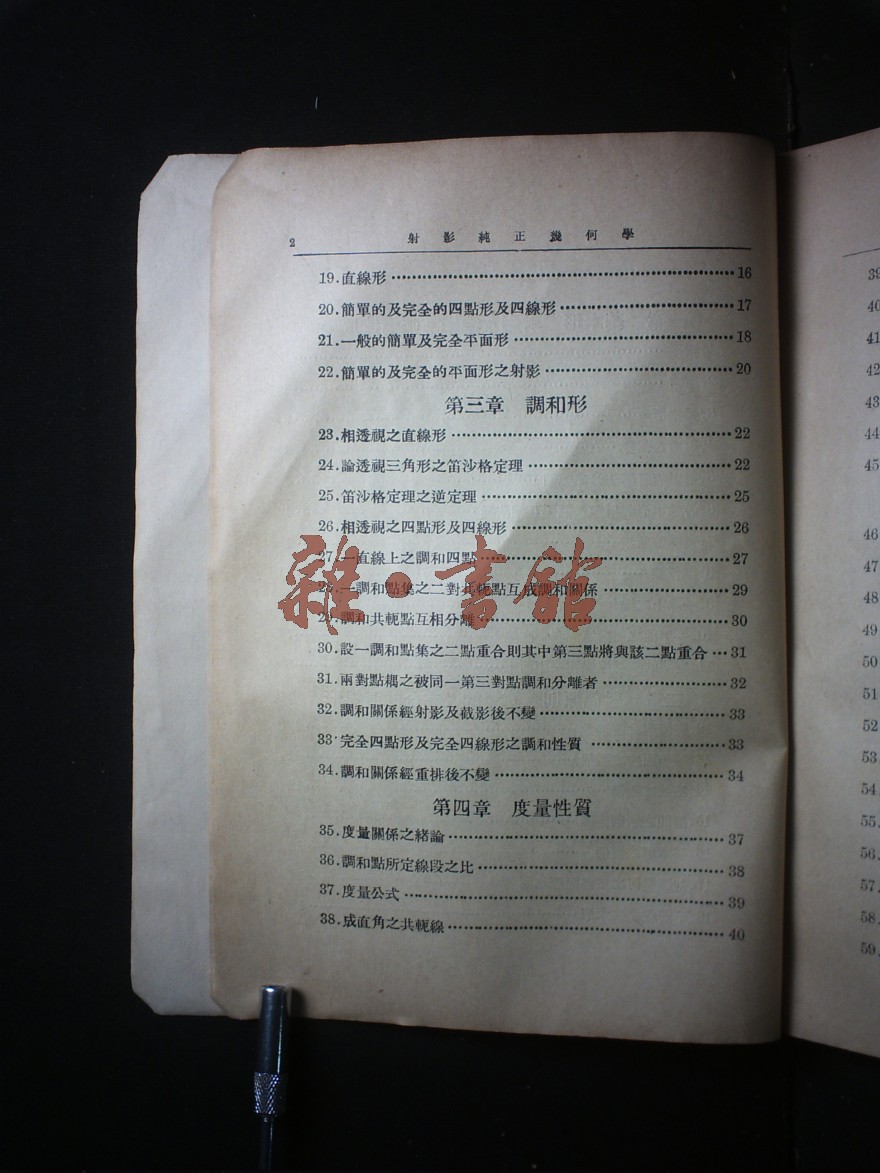 2 射影純正幾何學
19.直線形 16
20.簡單的及完全的四點形及四線形 17
21.一般的簡單及完全平面形 18
22.簡單的及完全的平面形之射影 20
第三章 調和形
23.相透視之直線形 22
24.論透視三角形之笛沙格定理 22
25.笛沙格定理之逆定理 25
26.相透視之四點形及四線形 26
27.一直線上之調和四點 27
28.一調和點集之二對共軛點互成調和關係 29
29.調和共軛點互相分離 30
30.設一調和點集之二點重合則其中第三點將與該二點重合 31
31.兩對點耦之被同一第三對點調和分離者 32
32.調和關係經射影及截影後不變 33
33.完全四點形及完全四線形之調和性質 33
34.調和關係經重排後不變 34
第四章 度量性質
35.度量關係之緒論 37
36.調和點所定線段之比 38
37.度量公式 39
38.成直角之共軛線 40
雜·書館
39
40
41
42
43
44
45
46
47
48
49
50
51
52
53
54
55.
56.
57.
58.
59.